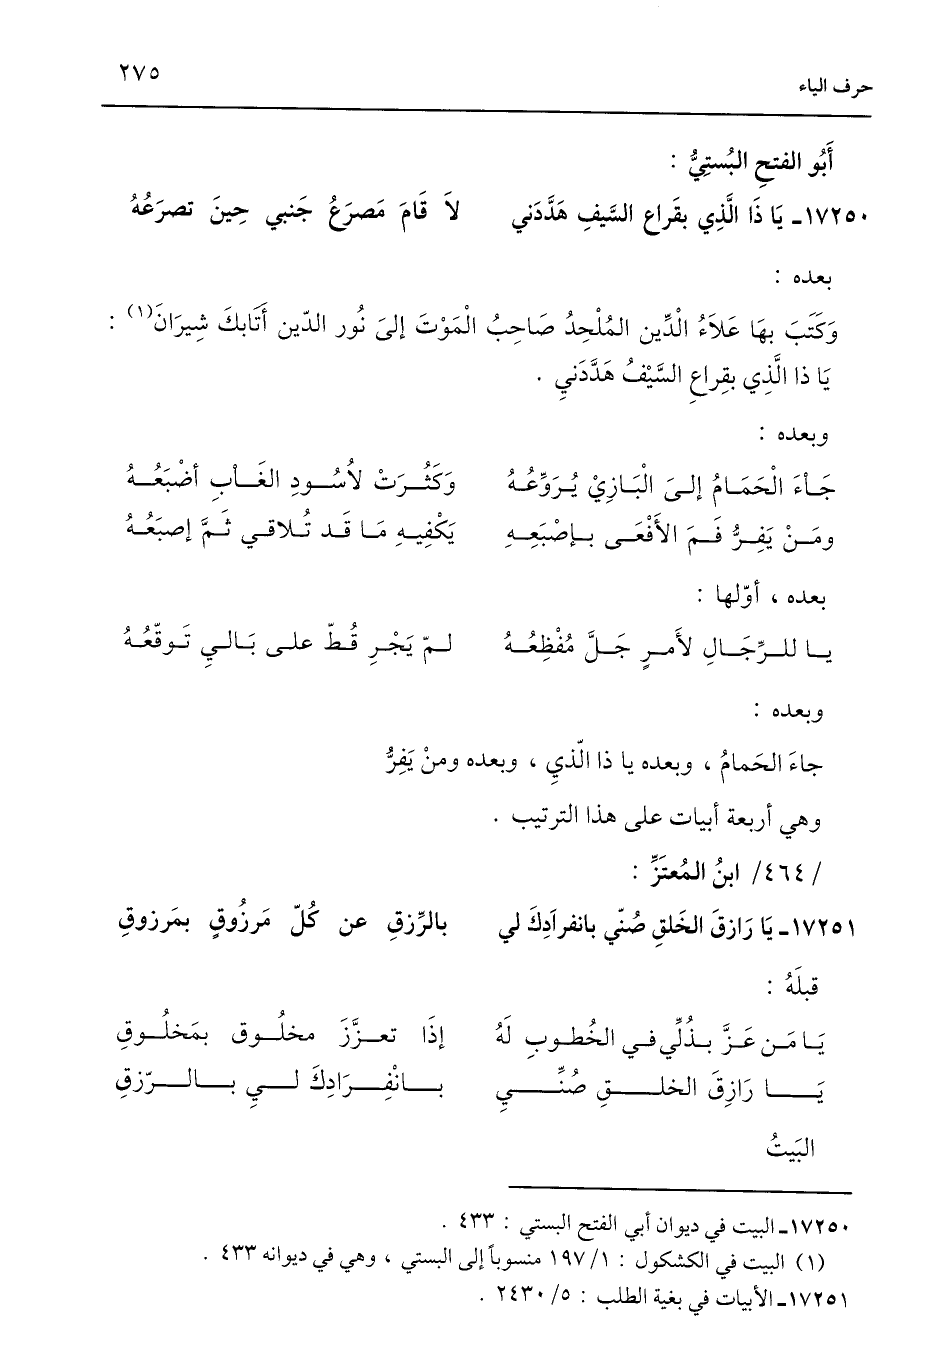 حرف الياء ٢٧٥
أَبُو الفتحِ البُستِيُّ :
١٧٢٥٠ـ يَا ذَا الَّذِي بقَراع السَّيفِ هَدَّدَني لاَ قَامَ مَصرَعُ جَنبي حِينَ تصرَعُهُ
بعده :
وَكَتَبَ بهَا عَلاَءُ الْدِّين المُلْحِدُ صَاحِبُ الْمَوْتَ إلىَ نُور الدّين أَتَابكَ شِيرَانَ(١) :
يَا ذا الَّذِي بقِراعِ السَّيْفُ هَدَّدَنيِ .
وبعده :
جَاْءَ الْحَمَامُ إلىَ الْبَازِيْ يُرَوِّعُهُ وَكَثُرَتْ لأسُودِ الغَاْبِ أضْبَعُهُ
ومَنْ يَفِرُّ فَمَ الأَفْعَى بإصْبَعِهِ يَكْفِيهِ مَا قَد تُلاقي ثَمَّ إصبَعُهُ
بعده ، أوّلها :
يا للرِّجَالِ لأَمرٍ جَلَّ مُفْظِعُهُ لمّ يَجْرِ قُطّ على بَاليِ تَوقّعُهُ
وبعده :
جاءَ الحَمامُ ، وبعده يا ذا الّذيِ ، وبعده ومنْ يَفِرُّ
وهي أربعة أبيات على هذا الترتيب .
/٤٦٤/ ابنُ المُعتَزِّ :
١٧٢٥١ـ يَا رَازقَ الخَلقِ صُنّي بانفرَادِكَ لي بالرِّزقِ عن كُلّ مَرزُوقٍ بمَرزوقِ
قبلَهُ :
يَا مَن عَزَّ بذُلِّي في الخُطوبِ لَهُ إذَا تعزَّزَ مخلُوق بمَخلُوقِ
يَا رَازِقَ الخلقِ صُنِّيِ بانْفِرَادِكَ ليِ بالرّزقِ
البَيتُ
١٧٢٥٠ـ البيت في ديوان أبي الفتح البستي : ٤٣٣ .
(١) البيت في الكشكول : ١/ ١٩٧ منسوباً إلى البستي ، وهي في ديوانه ٤٣٣ .
١٧٢٥١ـ الأبيات في بغية الطلب : ٥/ ٢٤٣٠ .